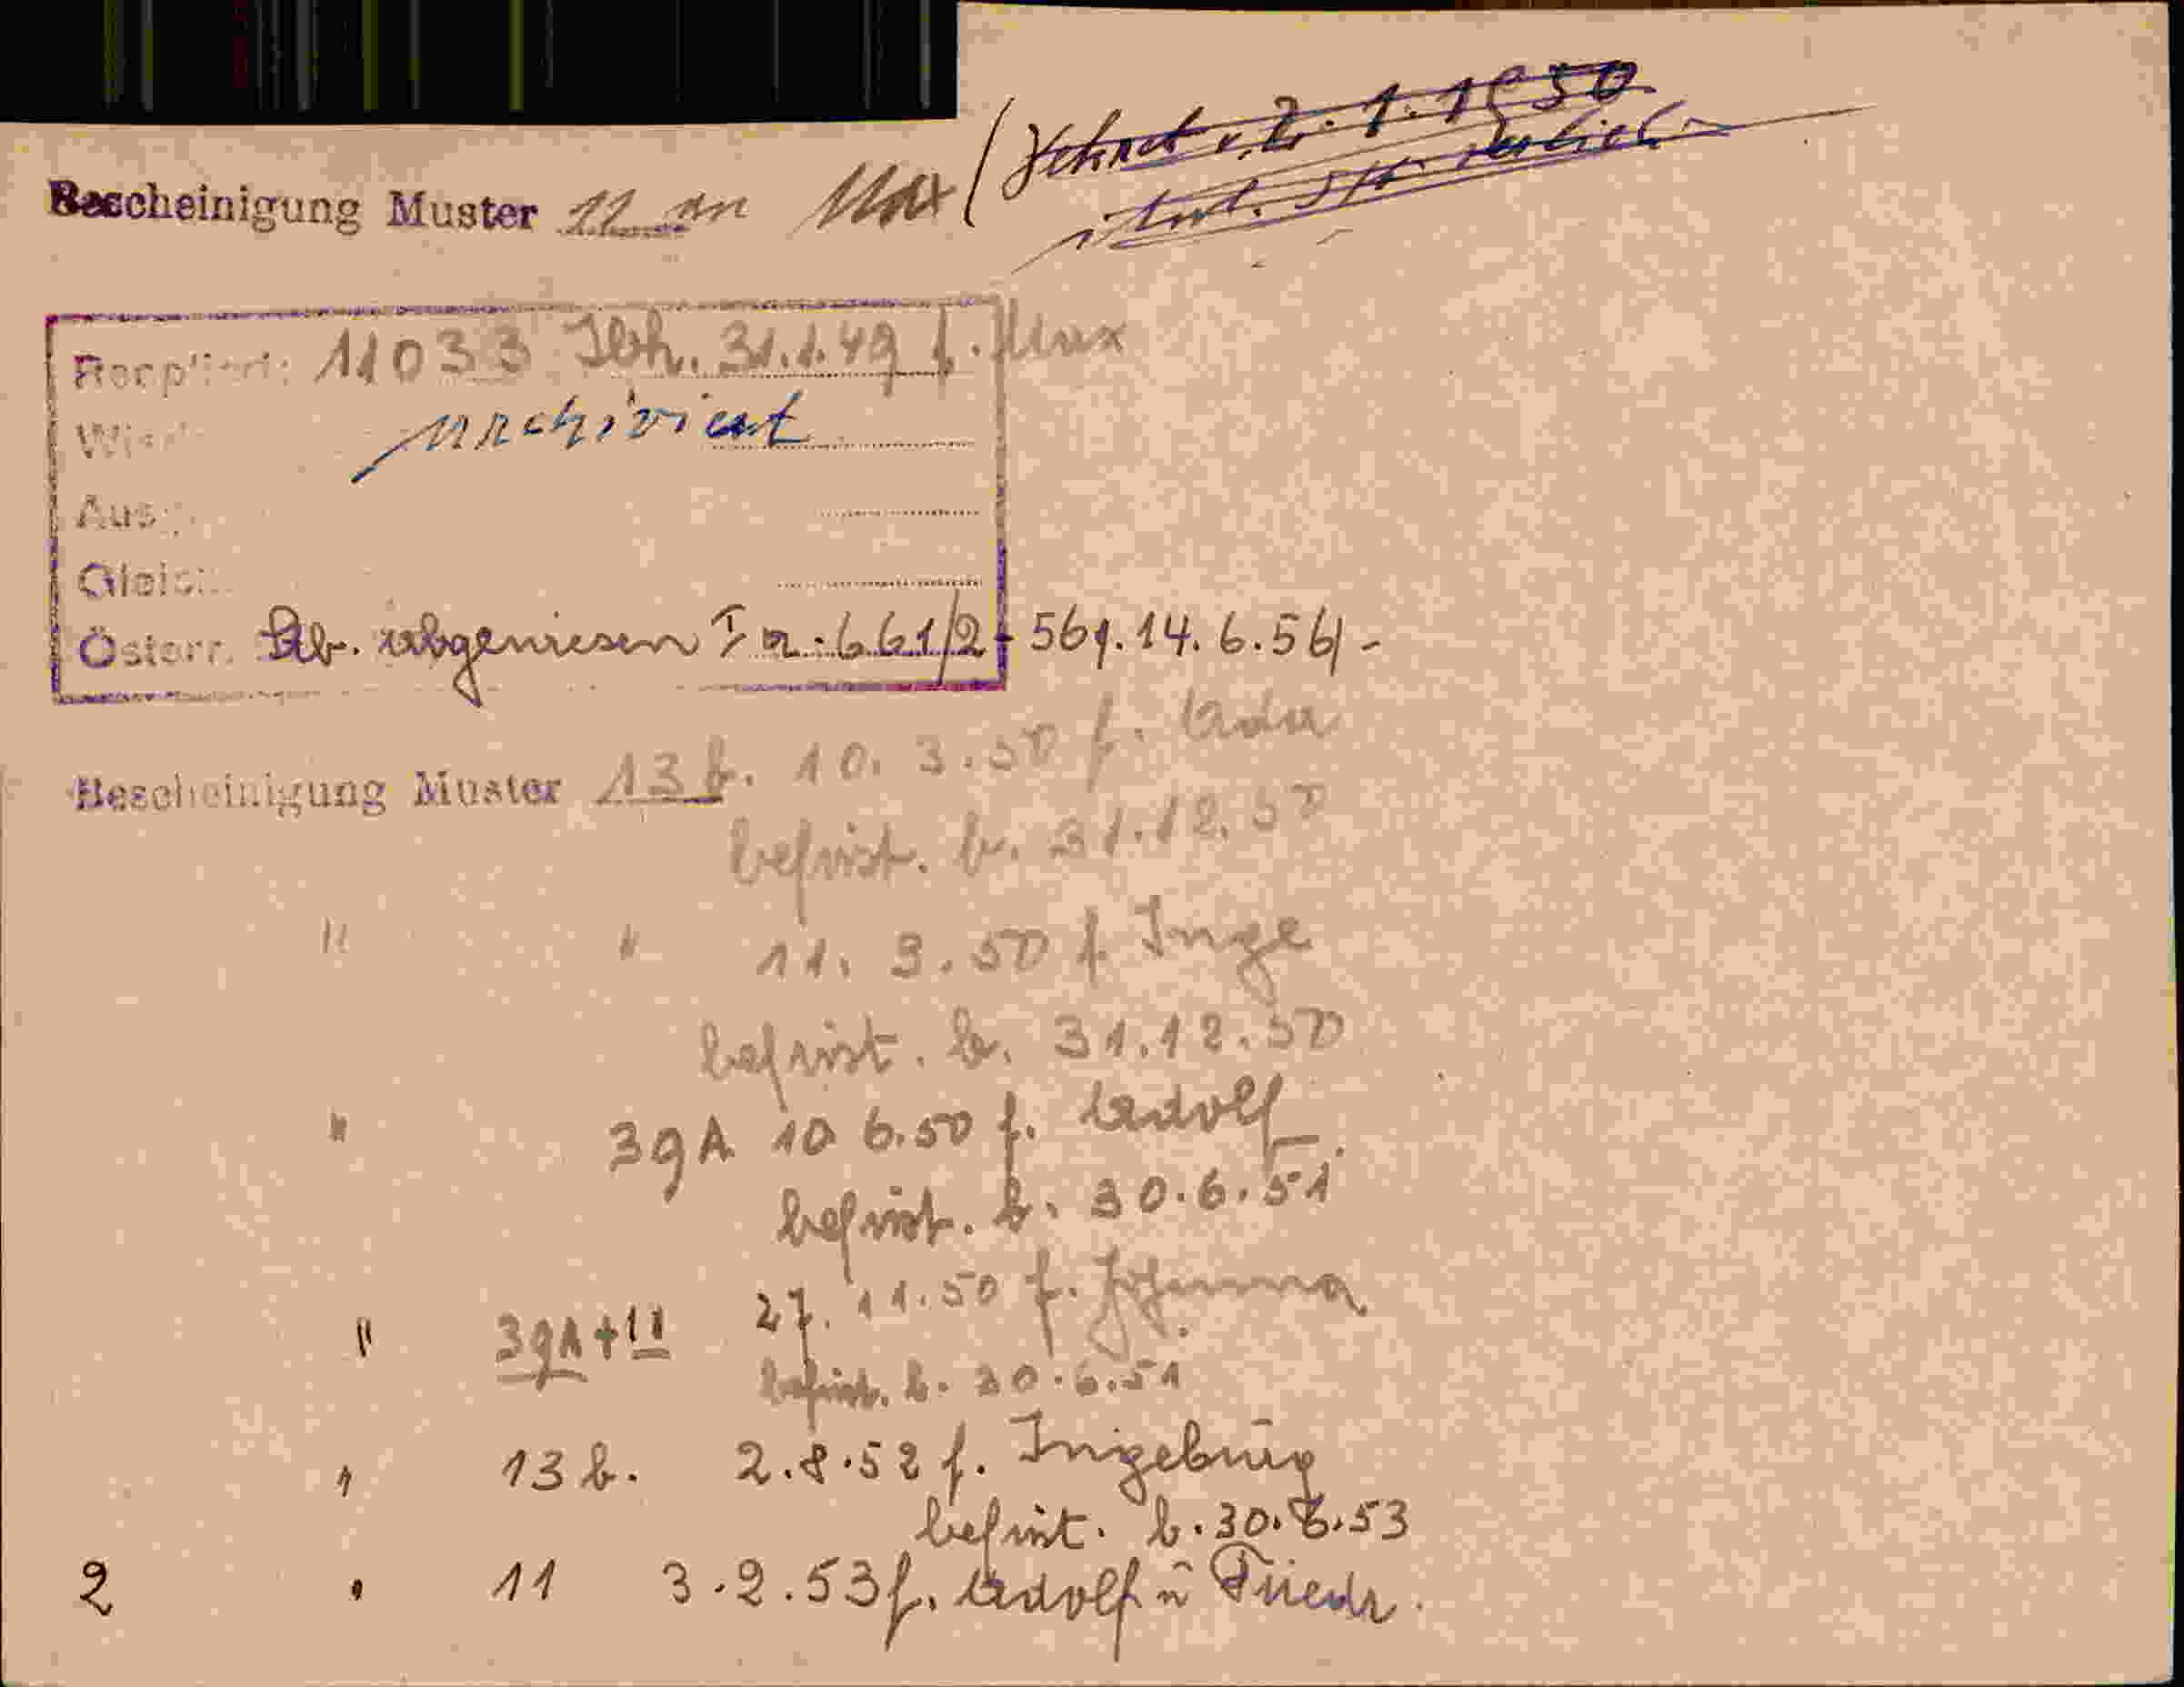 Bescheinigung Muster 11 an Max (
2.1.1950
Rezipiert: 11033 31.1.49 f. Max
archiviert
Aus
Gleich
Österr. abgewiesen I a-661/2-56 v. 14.6.56 -
Bescheinigung Muster 13 b. 10.3.50 f. Ada
befrist. b. 31.12.50
" " 11.3.50 f. Inge
befrist. b. 31.12.50
" 39A 10 6.50 f. Adolf
befrist. b. 30.6.51
" 39A+11 27.11.50 f. Johanna
befrist. b. 30.6.51
" 13 b. 2.8.52 f. Ingeburg
befrist. b. 30.6.53
2 " 11 3.2.53 f. Adolf u Friedr.